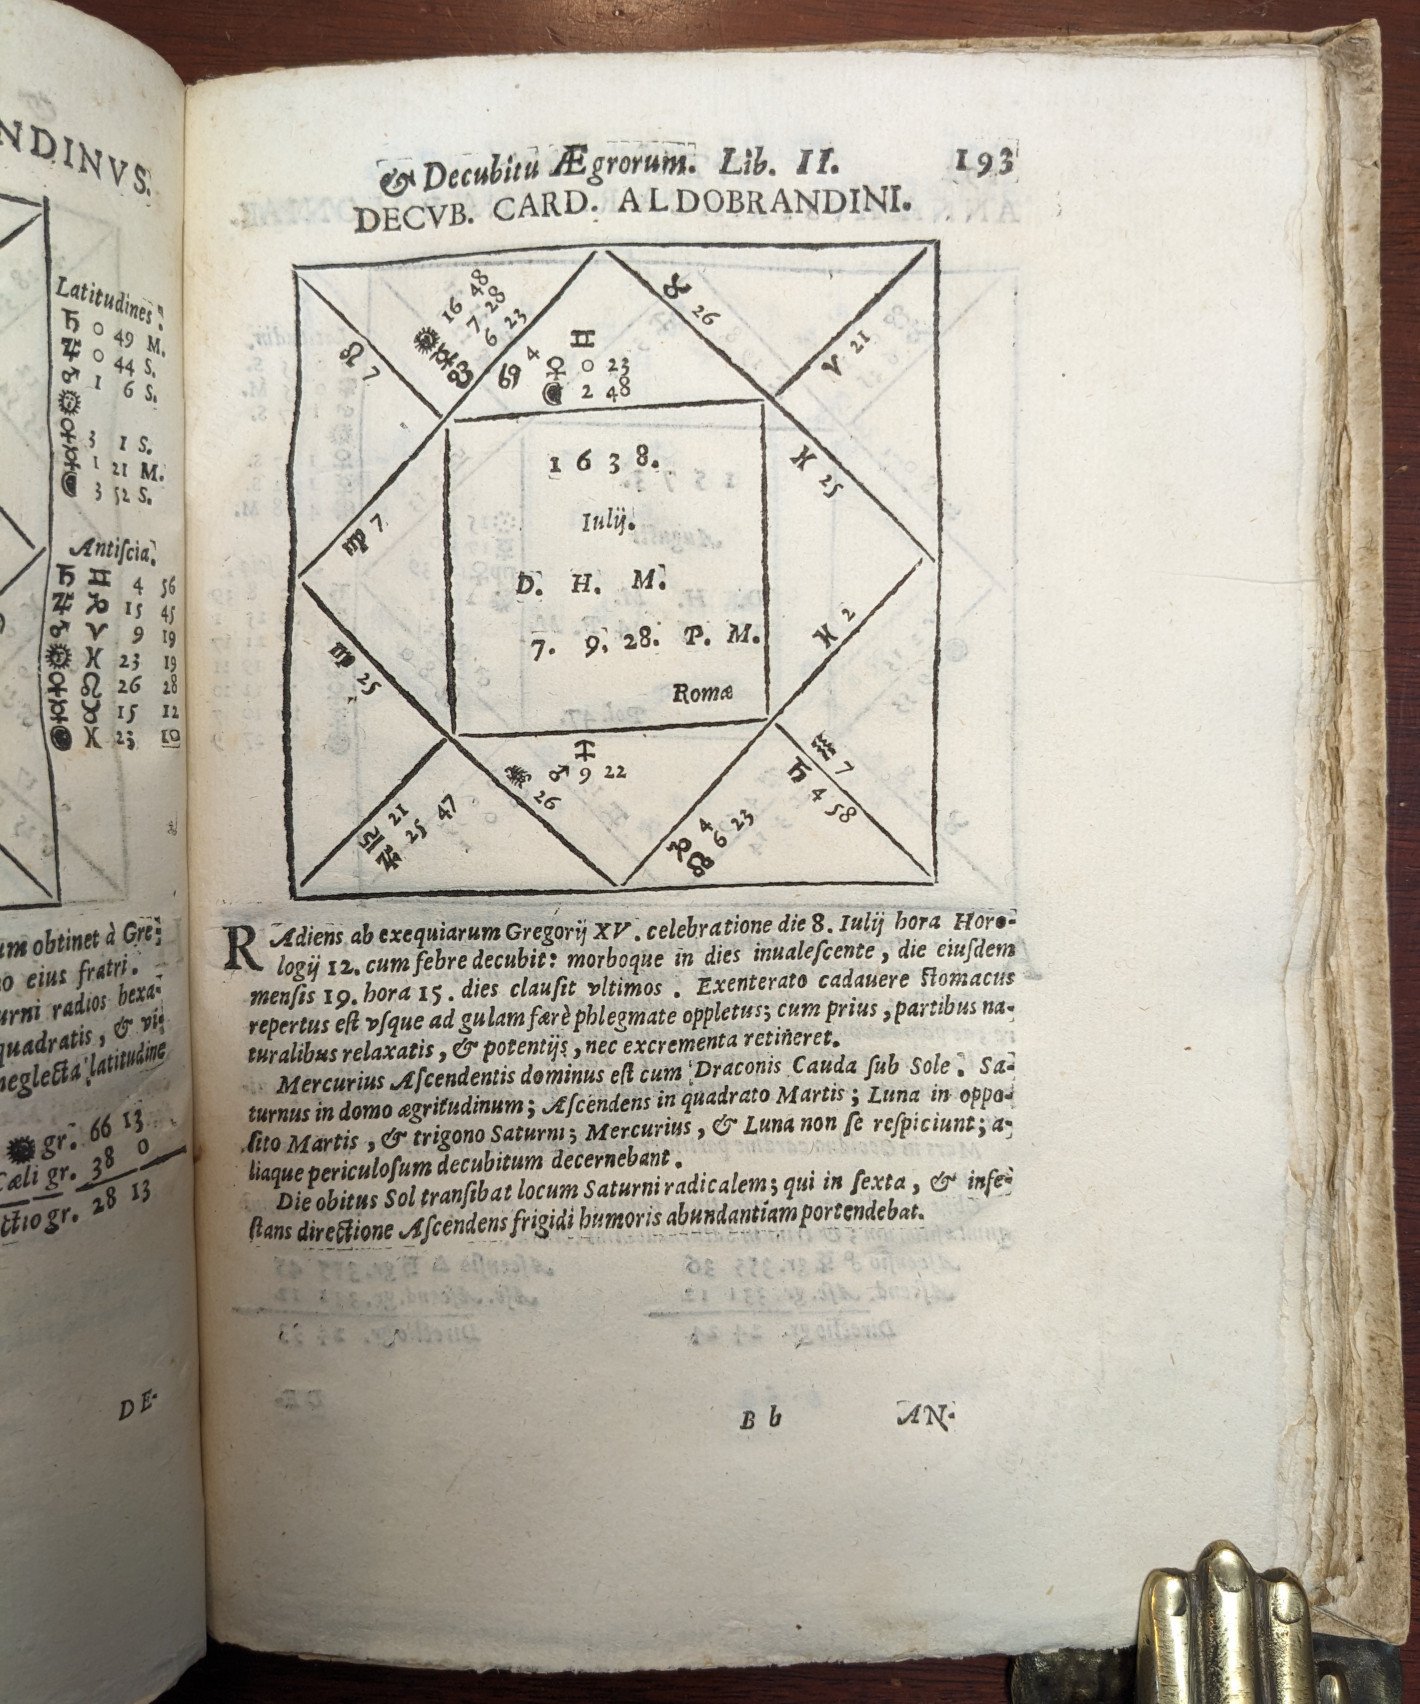 NDINVS.
Latitudines.
♄ 0 49 M.
♃ 0 44 S.
♂ 1 6 S.
☉
♀ 3 1 S.
☿ 1 21 M.
☽ 3 52 S.
Antiſcia.
♄ ♊ 4 56
♃ ♑ 15 45
♂ ♈ 9 19
☉ ♓ 23 19
♀ ♌ 26 28
☿ 15 12
☽ ♓ 23 10
um obtinet à Gre-
o eius fratri.
urni radios hexa-
quadratis, & vi-
neglecta latitudine
☉ gr. 66 13
Cæli gr. 38 0
ctio gr. 28 13
DE-
& Decubitu Ægrorum. Lib. II. 193
DECVB. CARD. ALDOBRANDINI.
☉ 16 48
☿ 7 28
☋ 6 23
♌ 7
♋ 4
♊
♀ 0 23
☽ 2 48
♉ 26
♈ 21
♓ 25
♍ 7
1638.
Iulij.
D. H. M.
7. 9. 28. P. M.
Romæ
♓ 2
♍ 25
♎ 21
♃ 25 47
♏ 26
♐
♂ 9 22
♑ 4
☊ 6 23
♒ 7
♄ 4 58
RAdiens ab exequiarum Gregorij XV. celebratione die 8. Iulij hora Horo-
logij 12. cum febre decubit: morboque in dies inualeſcente, die eiuſdem
menſis 19. hora 15. dies clauſit vltimos. Exenterato cadauere ſtomacus
repertus eſt vſque ad gulam færè phlegmate oppletus; cum prius, partibus na-
turalibus relaxatis, & potentijs, nec excrementa retiñeret.
Mercurius Aſcendentis dominus eſt cum Draconis Cauda ſub Sole. Sa-
turnus in domo ægritudinum; Aſcendens in quadrato Martis; Luna in oppo-
ſito Martis, & trigono Saturni; Mercurius, & Luna non ſe reſpiciunt; a-
liaque periculoſum decubitum decernebant.
Die obitus Sol tranſibat locum Saturni radicalem; qui in ſexta, & infe-
ſtans directione Aſcendens frigidi humoris abundantiam portendebat.
Bb AN-